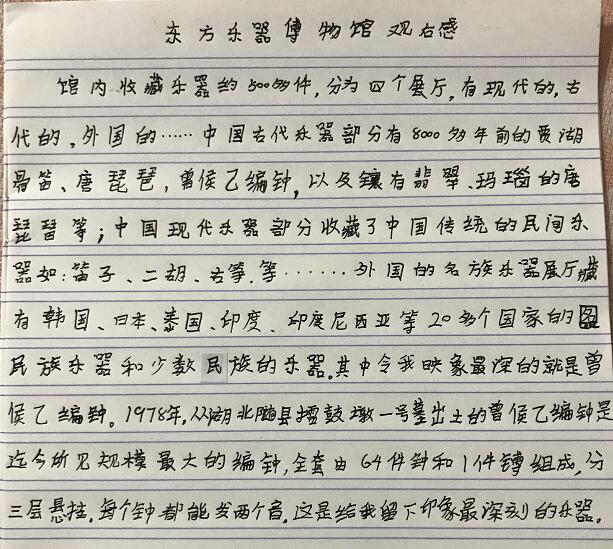 东方乐器博物馆观后感
馆内收藏乐器约500多件，分为四个展厅，有现代的，古
代的，外国的……中国古代乐器部分有8000多年前的贾湖
骨笛、唐琵琶，曾侯乙编钟，以及镶有翡翠、玛瑙的唐
琵琶等；中国现代乐器部分收藏了中国传统的民间乐
器如：笛子、二胡、古筝，等……外国的名族乐器展厅藏
有韩国、日本、泰国、印度、印度尼西亚等20多个国家的
民族乐器和少数民族的乐器。其中令我映象最深的就是曾
侯乙编钟。1978年，从湖北随县擂鼓墩一号墓出土的曾侯乙编钟是
迄今所见规模最大的编钟，全套由64件钟和1件镈组成，分
三层悬挂。每个钟都能发两个音。这是给我留下印象最深刻的乐器。